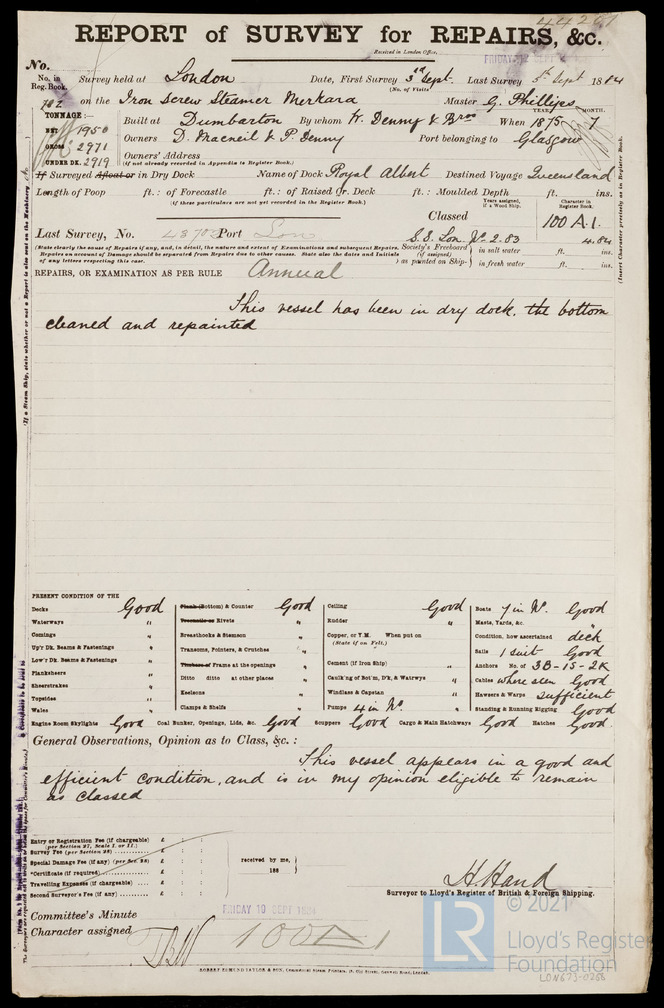 44267
REPORT of SURVEY for REPAIRS, &c.
Received in London Office,
FRIDAY 12 SEPT
No.
No. in Reg. Book. Survey held at London Date, First Survey 3rd Sept. Last Survey 5th Sept 1884
(No. of Visits)
702 on the Iron Screw Steamer Merkara Master G. Phillips
TONNAGE:— Built at Dumbarton By whom W. Denny & Bros When 1875 7
YEAR. MONTH.
NET 1950
GROSS 2971 Owners D. Macneil & P. Denny Port belonging to Glasgow
UNDER DK. 2919 Owners' Address
(if not already recorded in Appendix to Register Book.)
If Surveyed Afloat or in Dry Dock Name of Dock Royal Albert Destined Voyage Queensland
Length of Poop ft. : of Forecastle ft. : of Raised Qr. Deck ft. : Moulded Depth ft. ins.
(if these particulars are not yet recorded in the Register Book.)
Years assigned, if a Wood Ship.
Character in Register Book.
Classed 100 A.1.
Last Survey, No. 43702 Port Lon S.S. Lon. No. 2.83 4.84
(State clearly the cause of Repairs if any, and, in detail, the nature and extent of Examinations and subsequent Repairs.
Repairs on account of Damage should be separated from Repairs due to other causes. State also the dates and Initials
of any letters respecting this case.)
Society's Freeboard (if assigned) as painted on Ship- in salt water ft. ins.
in fresh water ft. ins.
REPAIRS, OR EXAMINATION AS PER RULE Annual
This vessel has been in dry dock, the bottom
cleaned and repainted
PRESENT CONDITION OF THE
Decks Good
Waterways "
Comings "
Up'r Dk. Beams & Fastenings "
Low'r Dk. Beams & Fastenings "
Planksheers "
Sheerstrakes "
Topsides "
Wales "
Plank (Bottom) & Counter Good
Treenails or Rivets "
Breasthooks & Stemson "
Transoms, Pointers, & Crutches "
Timbers of Frame at the openings "
Ditto ditto at other places "
Keelsons "
Clamps & Shelfs "
Ceiling Good
Rudder "
Copper, or Y.M. When put on
(State if on Felt.)
Cement (if Iron Ship) "
Caulk'g of Bot'm, D'k, & Watrwys "
Windlass & Capstan "
Pumps 4 in No.
Boats 7 in No. Good
Masts, Yards, &c. Good
Condition, how ascertained deck
Sails 1 suit Good
Anchors No. of 3B-1S-2K
Cables where seen Good
Hawsers & Warps sufficient
Standing & Running Rigging Good
Engine Room Skylights Good Coal Bunker, Openings, Lids, &c. Good Scuppers Good Cargo & Main Hatchways Good Hatches Good
General Observations, Opinion as to Class, &c. :
This vessel appears in a good and
efficient condition, and is in my opinion eligible to remain
as classed
Entry or Registration Fee (if chargeable) £ : :
(per Section 27, Scale I. or II.)
Survey Fee (per Section 28) £ : :
Special Damage Fee (if any) (per Sec. 28) £ : :
*Certificate (if required) £ : :
Travelling Expenses (if chargeable) £ : :
Second Surveyor's Fee (if any) £ : :
received by me,
188
H. Hand
Surveyor to Lloyd's Register of British & Foreign Shipping.
Committee's Minute FRIDAY 19 SEPT 1884
Character assigned 100 A 1
ROBERT EDMUND TAYLOR & SON, Commercial Steam Printers,
LR
© 2021
Lloyd's Register
Foundation
LON673-0266